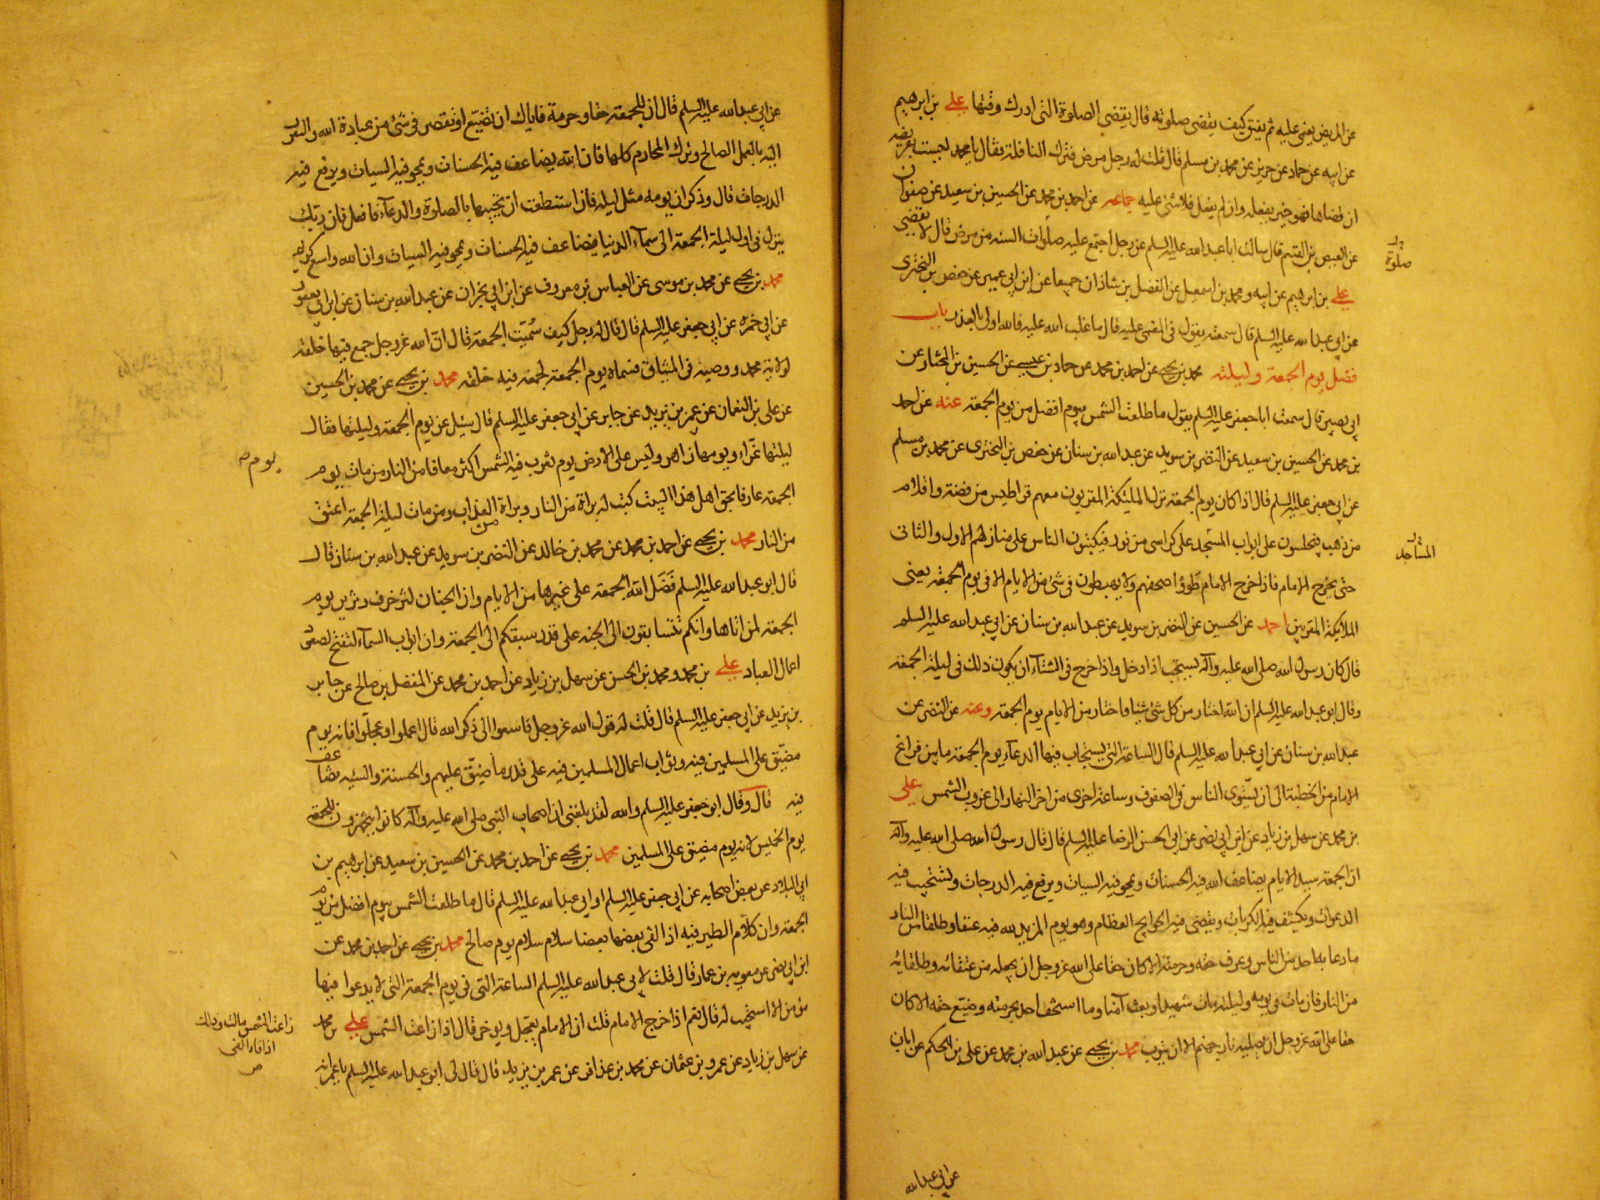 عن المريض يغمى عليه ثم يفيق كيف يقضى صلوته قال يقضى الصلوة التى ادرك وقتها علي بن ابرهيم
عن ابيه عن حماد عن حريز عن محمد بن مسلم قال قلت له رجل مرض فترك النافلة فقال يا محمد ليست بفريضة
ان قضاها فهو خير يفعله وان لم يفعل فلا شئ عليه جماعة عن احمد بن محمد عن الحسين بن سعيد عن صفوان
عن العيص بن القسم قال سالت ابا عبد الله عليه السلم عن رجل اجتمع عليه صلوات السنة من مرض قال لا يقضى
صلوة
علي بن ابرهيم عن ابيه ومحمد بن اسمعيل عن الفضل بن شاذان جميعا عن ابن ابي عمير عن حفص بن البخترى
عن ابي عبد الله عليه السلم قال سمعته يقول في المغمى عليه قال ما غلب الله عليه فالله اولى بالعذر باب
فضل يوم الجمعة وليلته محمد بن يحيى عن احمد بن محمد عن حماد بن عيسى عن الحسين بن المختار عن
ابي بصير قال سمعت ابا جعفر عليه السلم يقول ما طلعت الشمس بيوم افضل من يوم الجمعة عنه عن احمد
بن محمد عن الحسين بن سعيد عن النضر بن سويد عن عبد الله بن سنان عن حفص بن البخترى عن محمد بن مسلم
عن ابي جعفر عليه السلم قال اذا كان يوم الجمعة نزل الملئكة المقربون معهم قراطيس من فضة واقلام
من ذهب فيجلسون على ابواب المسجد على كراسى من نور فيكتبون الناس على منازلهم الاول والثانى
المساجد
حتى يخرج الامام فاذا خرج الامام طووا صحفهم ولا يهبطون في شئ من الايام الا في يوم الجمعة يعنى
الملائكة المقربين احمد عن الحسين عن النضر بن سويد عن عبد الله بن سنان عن ابي عبد الله عليه السلم
قال كان رسول الله صلى الله عليه وآله يستحب اذا دخل واذا خرج في الشتاء ان يكون ذلك في ليلة الجمعة
وقال ابو عبد الله عليه السلم ان الله اختار من كل شئ شيئا فاختار من الايام يوم الجمعة وعنه عن النضر عن
عبد الله بن سنان عن ابي عبد الله عليه السلم قال الساعة التى يستجاب فيها الدعاء يوم الجمعة ما بين فراغ
الامام من الخطبة الى ان يستوى الناس في الصفوف وساعة اخرى من اخر النهار الى غروب الشمس علي
بن محمد عن سهل بن زياد عن ابن ابي نصر عن ابي الحسن الرضا عليه السلم قال قال رسول الله صلى الله عليه وآله
ان الجمعة سيد الايام يضاعف الله فيه الحسنات ويمحو فيه السيئات ويرفع فيه الدرجات ويستجيب فيه
الدعوات ويكشف فيه الكربات ويقضى فيه الحوايج العظام وهو يوم المزيد لله فيه عتقا وطلقا من النار
ما دعا به احد من الناس وعرف حقه وحرمته الا كان حقا على الله عز وجل ان يجعله من عتقائه وطلقائه
من النار فان مات في يومه وليلته مات شهيدا وبعث آمنا وما استخف احد بحرمته وضيع حقه الا كان
حقا على الله عز وجل ان يصليه نار جهنم الا ان يتوب محمد بن يحيى عن عبد الله بن محمد عن علي بن الحكم عن ابان
عن ابي عبد الله
عن ابي عبد الله عليه السلم قال ان للجمعة حقا وحرمة فاياك ان تضيع او تقصر في شئ من عبادة الله والتقرب
اليه بالعمل الصالح وترك المحارم كلها فان الله يضاعف فيه الحسنات ويمحو فيه السيئات ويرفع فيه
الدرجات قال وذكر ان يومه مثل ليلته فان استطعت ان تحييها بالصلوة والدعاء فافعل فان ربك
ينزل في اول ليلة الجمعة الى سماء الدنيا فيضاعف فيه الحسنات ويمحو فيه السيئات وان الله واسع كريم
محمد بن يحيى عن محمد بن موسى عن العباس بن معروف عن ابن ابي نجران عن عبد الله بن سنان عن ابن ابي يعفور
عن ابي حمزة عن ابي جعفر عليه السلم قال قال له رجل كيف سميت الجمعة قال ان الله عز وجل جمع فيها خلقه
لولاية محمد ووصيه في الميثاق فسماه يوم الجمعة لجمعه فيه خلقه محمد بن يحيى عن محمد بن الحسين
عن علي بن النعمان عن عمر بن يزيد عن جابر عن ابي جعفر عليه السلم قال سئل عن يوم الجمعة وليلتها فقال
ليلتها غراء ويومها ازهر وليس على الارض يوم تغرب فيه الشمس اكثر معافا من النار من مات يوم
يوم
الجمعة عارفا بحق اهل هذا البيت كتب له براة من النار وبراة من العذاب ومن مات ليلة الجمعة اعتق
من النار محمد بن يحيى عن احمد بن محمد عن محمد بن خالد عن النضر بن سويد عن عبد الله بن سنان قال
قال ابو عبد الله عليه السلم فضل الله الجمعة على غيرها من الايام وان الجنان لتزخرف وتزين يوم
الجمعة لمن اتاها وانكم تتسابقون الى الجنة على قدر سبقكم الى الجمعة وان ابواب السماء لتفتح لصعود
اعمال العباد علي بن محمد ومحمد بن الحسن عن سهل بن زياد عن احمد بن محمد عن المفضل بن صالح عن جابر
بن يزيد عن ابي جعفر عليه السلم قال قلت له قول الله عز وجل فاسعوا الى ذكر الله قال اعملوا وعجلوا فانه يوم
مضيق على المسلمين فيه وثواب اعمال المسلمين فيه على قدر ما ضيق عليهم والحسنة والسيئة تضاعف
فيه قال وقال ابو جعفر عليه السلم والله لقد بلغنى ان اصحاب النبى صلى الله عليه وآله كانوا يتجهزون للجمعة
يوم الخميس لانه يوم مضيق على المسلمين محمد بن يحيى عن احمد بن محمد عن الحسين بن سعيد عن ابرهيم بن
ابي البلاد عن بعض اصحابه عن ابي جعفر عليه السلم او ابي عبد الله عليه السلم قال ما طلعت الشمس بيوم افضل من يوم
الجمعة وان كلام الطير فيه اذا التقى بعضها بعضا سلام سلام يوم صالح محمد بن يحيى عن احمد بن محمد عن
ابن ابي نصر عن معوية بن عمار قال قلت لابي عبد الله عليه السلم الساعة التى في يوم الجمعة التى لا يدعوا فيها
مؤمن الا استجيب له قال نعم اذا خرج الامام قلت ان الامام يعجل ويوخر قال اذا زاغت الشمس علي بن محمد
زاغت الشمس مالت وذلك
اذا فاء الفئ
عن سهل بن زياد عن عمرو بن عثمان عن محمد بن عذافر عن عمر بن يزيد قال قال لى ابو عبد الله عليه السلم يا عمر انه